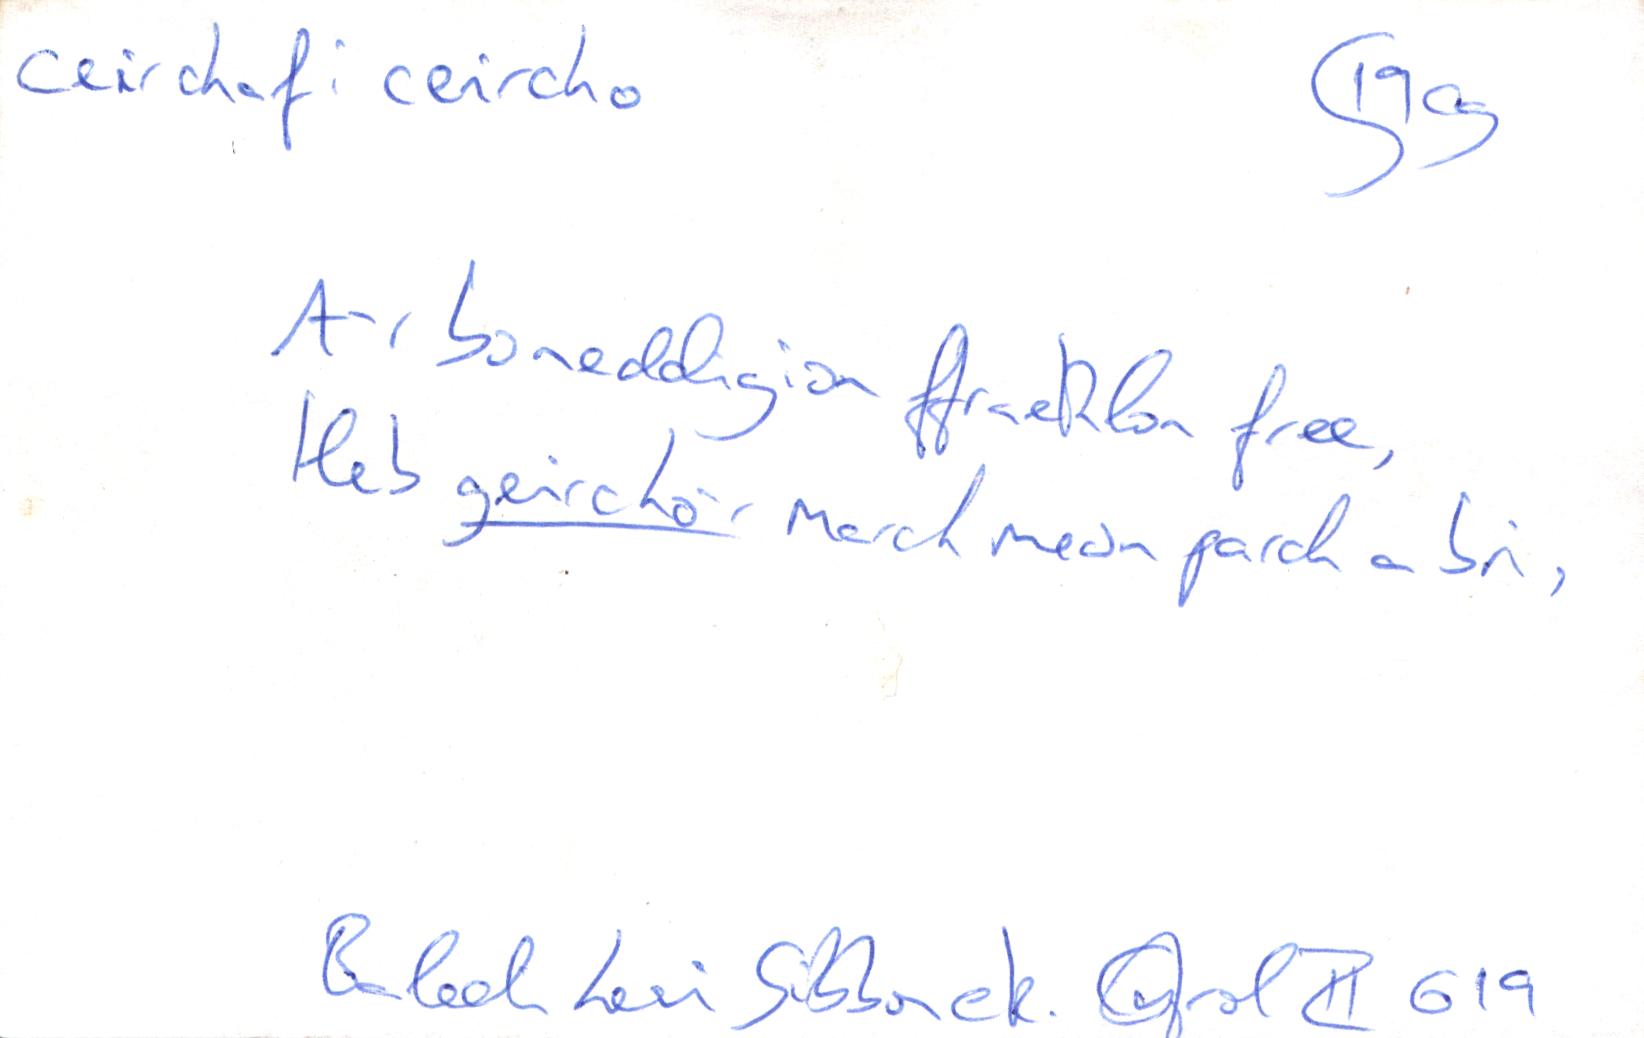 ceirchaf: ceircho 19g
A'r boneddigion ffraethlon free,
Heb geircho'r march mewn parch a bri,
Baled Levi Gibbon ek. Cyfrol II 619